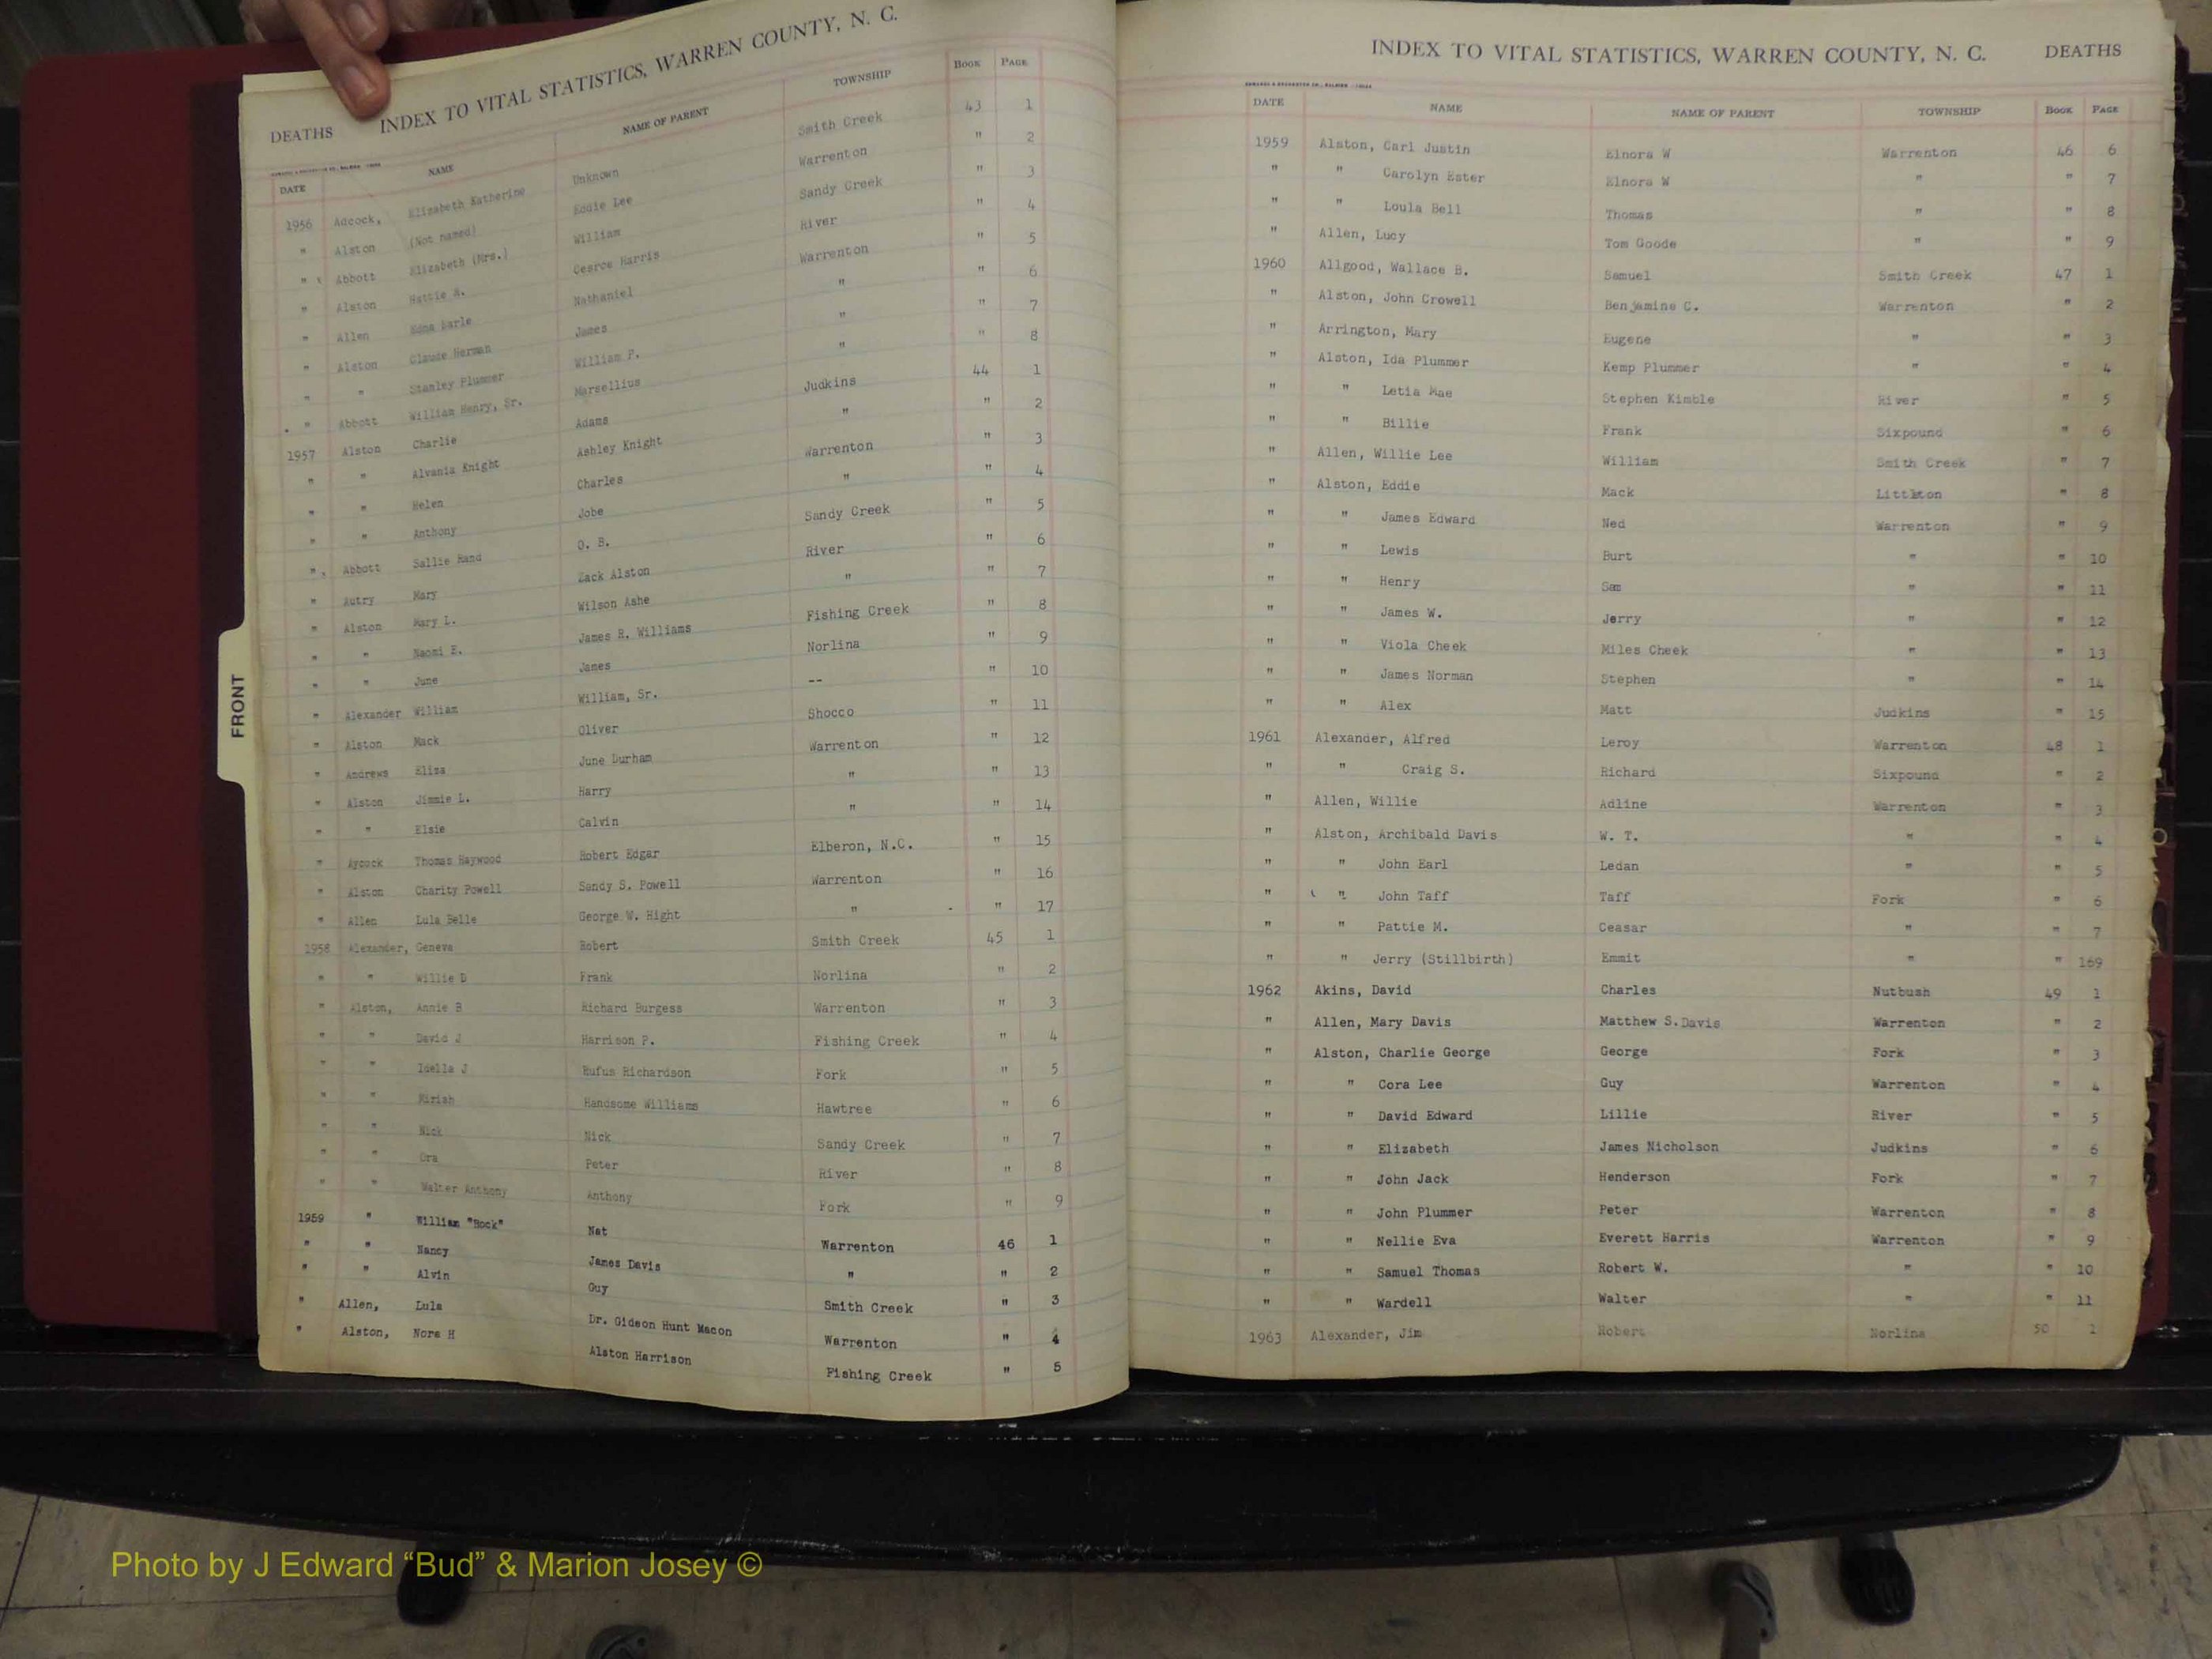 DEATHS INDEX TO VITAL STATISTICS, WARREN COUNTY, N. C.
DATE NAME NAME OF PARENT TOWNSHIP BOOK PAGE
1956 Adcock, Elizabeth Katherine Unknown Smith Creek 43 1
" Alston (Not named) Eddie Lee Warrenton " 2
" Abbott Elizabeth (Mrs.) William Sandy Creek " 3
" Alston Hattie A. Cesroe Harris River " 4
" Allen Edna Earle Nathaniel Warrenton " 5
" Alston Claude Herman James " " 6
" " Stanley Plummer William P. " " 7
" Abbott William Henry, Sr. Marsellius " " 8
1957 Alston Charlie Adams Judkins 44 1
" " Alvania Knight Ashley Knight " " 2
" " Helen Charles Warrenton " 3
" " Anthony Jobe " " 4
" Abbott Sallie Rand O. B. Sandy Creek " 5
" Autry Mary Zack Alston River " 6
" Alston Mary L. Wilson Ashe " " 7
" " Naomi E. James R. Williams Fishing Creek " 8
" " June James Norlina " 9
" Alexander William William, Sr. -- " 10
" Alston Mack Oliver Shocco " 11
" Andrews Eliza June Durham Warrenton " 12
" Alston Jimmie L. Harry " " 13
" " Elsie Calvin " " 14
" Aycock Thomas Haywood Robert Edgar Elberon, N.C. " 15
" Alston Charity Powell Sandy S. Powell Warrenton " 16
" Allen Lula Belle George W. Hight " " 17
1958 Alexander, Geneva Robert Smith Creek 45 1
" " Willie D Frank Norlina " 2
" Alston, Annie B Richard Burgess Warrenton " 3
" " David J Harrison P. Fishing Creek " 4
" " Idella J Rufus Richardson Fork " 5
" " Miriah Handsome Williams Hawtree " 6
" " Nick Nick Sandy Creek " 7
" " Ora Peter River " 8
" " Walter Anthony Anthony Fork " 9
1959 " William "Bock" Nat Warrenton 46 1
" " Nancy James Davis " " 2
" " Alvin Guy Smith Creek " 3
" Allen, Lula Dr. Gideon Hunt Macon Warrenton " 4
" Alston, Nora H Alston Harrison Fishing Creek " 5
FRONT
INDEX TO VITAL STATISTICS, WARREN COUNTY, N. C. DEATHS
DATE NAME NAME OF PARENT TOWNSHIP BOOK PAGE
1959 Alston, Carl Justin Elnora W Warrenton 46 6
" " Carolyn Ester Elnora W " " 7
" " Loula Bell Thomas " " 8
" Allen, Lucy Tom Goode " 9
1960 Allgood, Wallace B. Samuel Smith Creek 47 1
" Alston, John Crowell Benjamine C. Warrenton " 2
" Arrington, Mary Eugene " " 3
" Alston, Ida Plummer Kemp Plummer " " 4
" " Letia Mae Stephen Kimble River " 5
" " Billie Frank Sixpound " 6
" Allen, Willie Lee William Smith Creek " 7
" Alston, Eddie Mack Littleton " 8
" " James Edward Ned Warrenton " 9
" " Lewis Burt " " 10
" " Henry Sam " " 11
" " James W. Jerry " " 12
" " Viola Cheek Miles Cheek " " 13
" " James Norman Stephen " " 14
" " Alex Matt Judkins " 15
1961 Alexander, Alfred Leroy Warrenton 48 1
" " Craig S. Richard Sixpound " 2
" Allen, Willie Adline Warrenton " 3
" Alston, Archibald Davis W. T. " " 4
" " John Earl Ledan " " 5
" " John Taff Taff Fork " 6
" " Pattie M. Ceasar " " 7
" " Jerry (Stillbirth) Emmit " " 169
1962 Akins, David Charles Nutbush 49 1
" Allen, Mary Davis Matthew S.Davis Warrenton " 2
" Alston, Charlie George George Fork " 3
" " Cora Lee Guy Warrenton " 4
" " David Edward Lillie River " 5
" " Elizabeth James Nicholson Judkins " 6
" " John Jack Henderson Fork " 7
" " John Plummer Peter Warrenton " 8
" " Nellie Eva Everett Harris Warrenton " 9
" " Samuel Thomas Robert W. " " 10
" " Wardell Walter " " 11
1963 Alexander, Jim Robert Norlina 50 1
Photo by J Edward “Bud” & Marion Josey ©